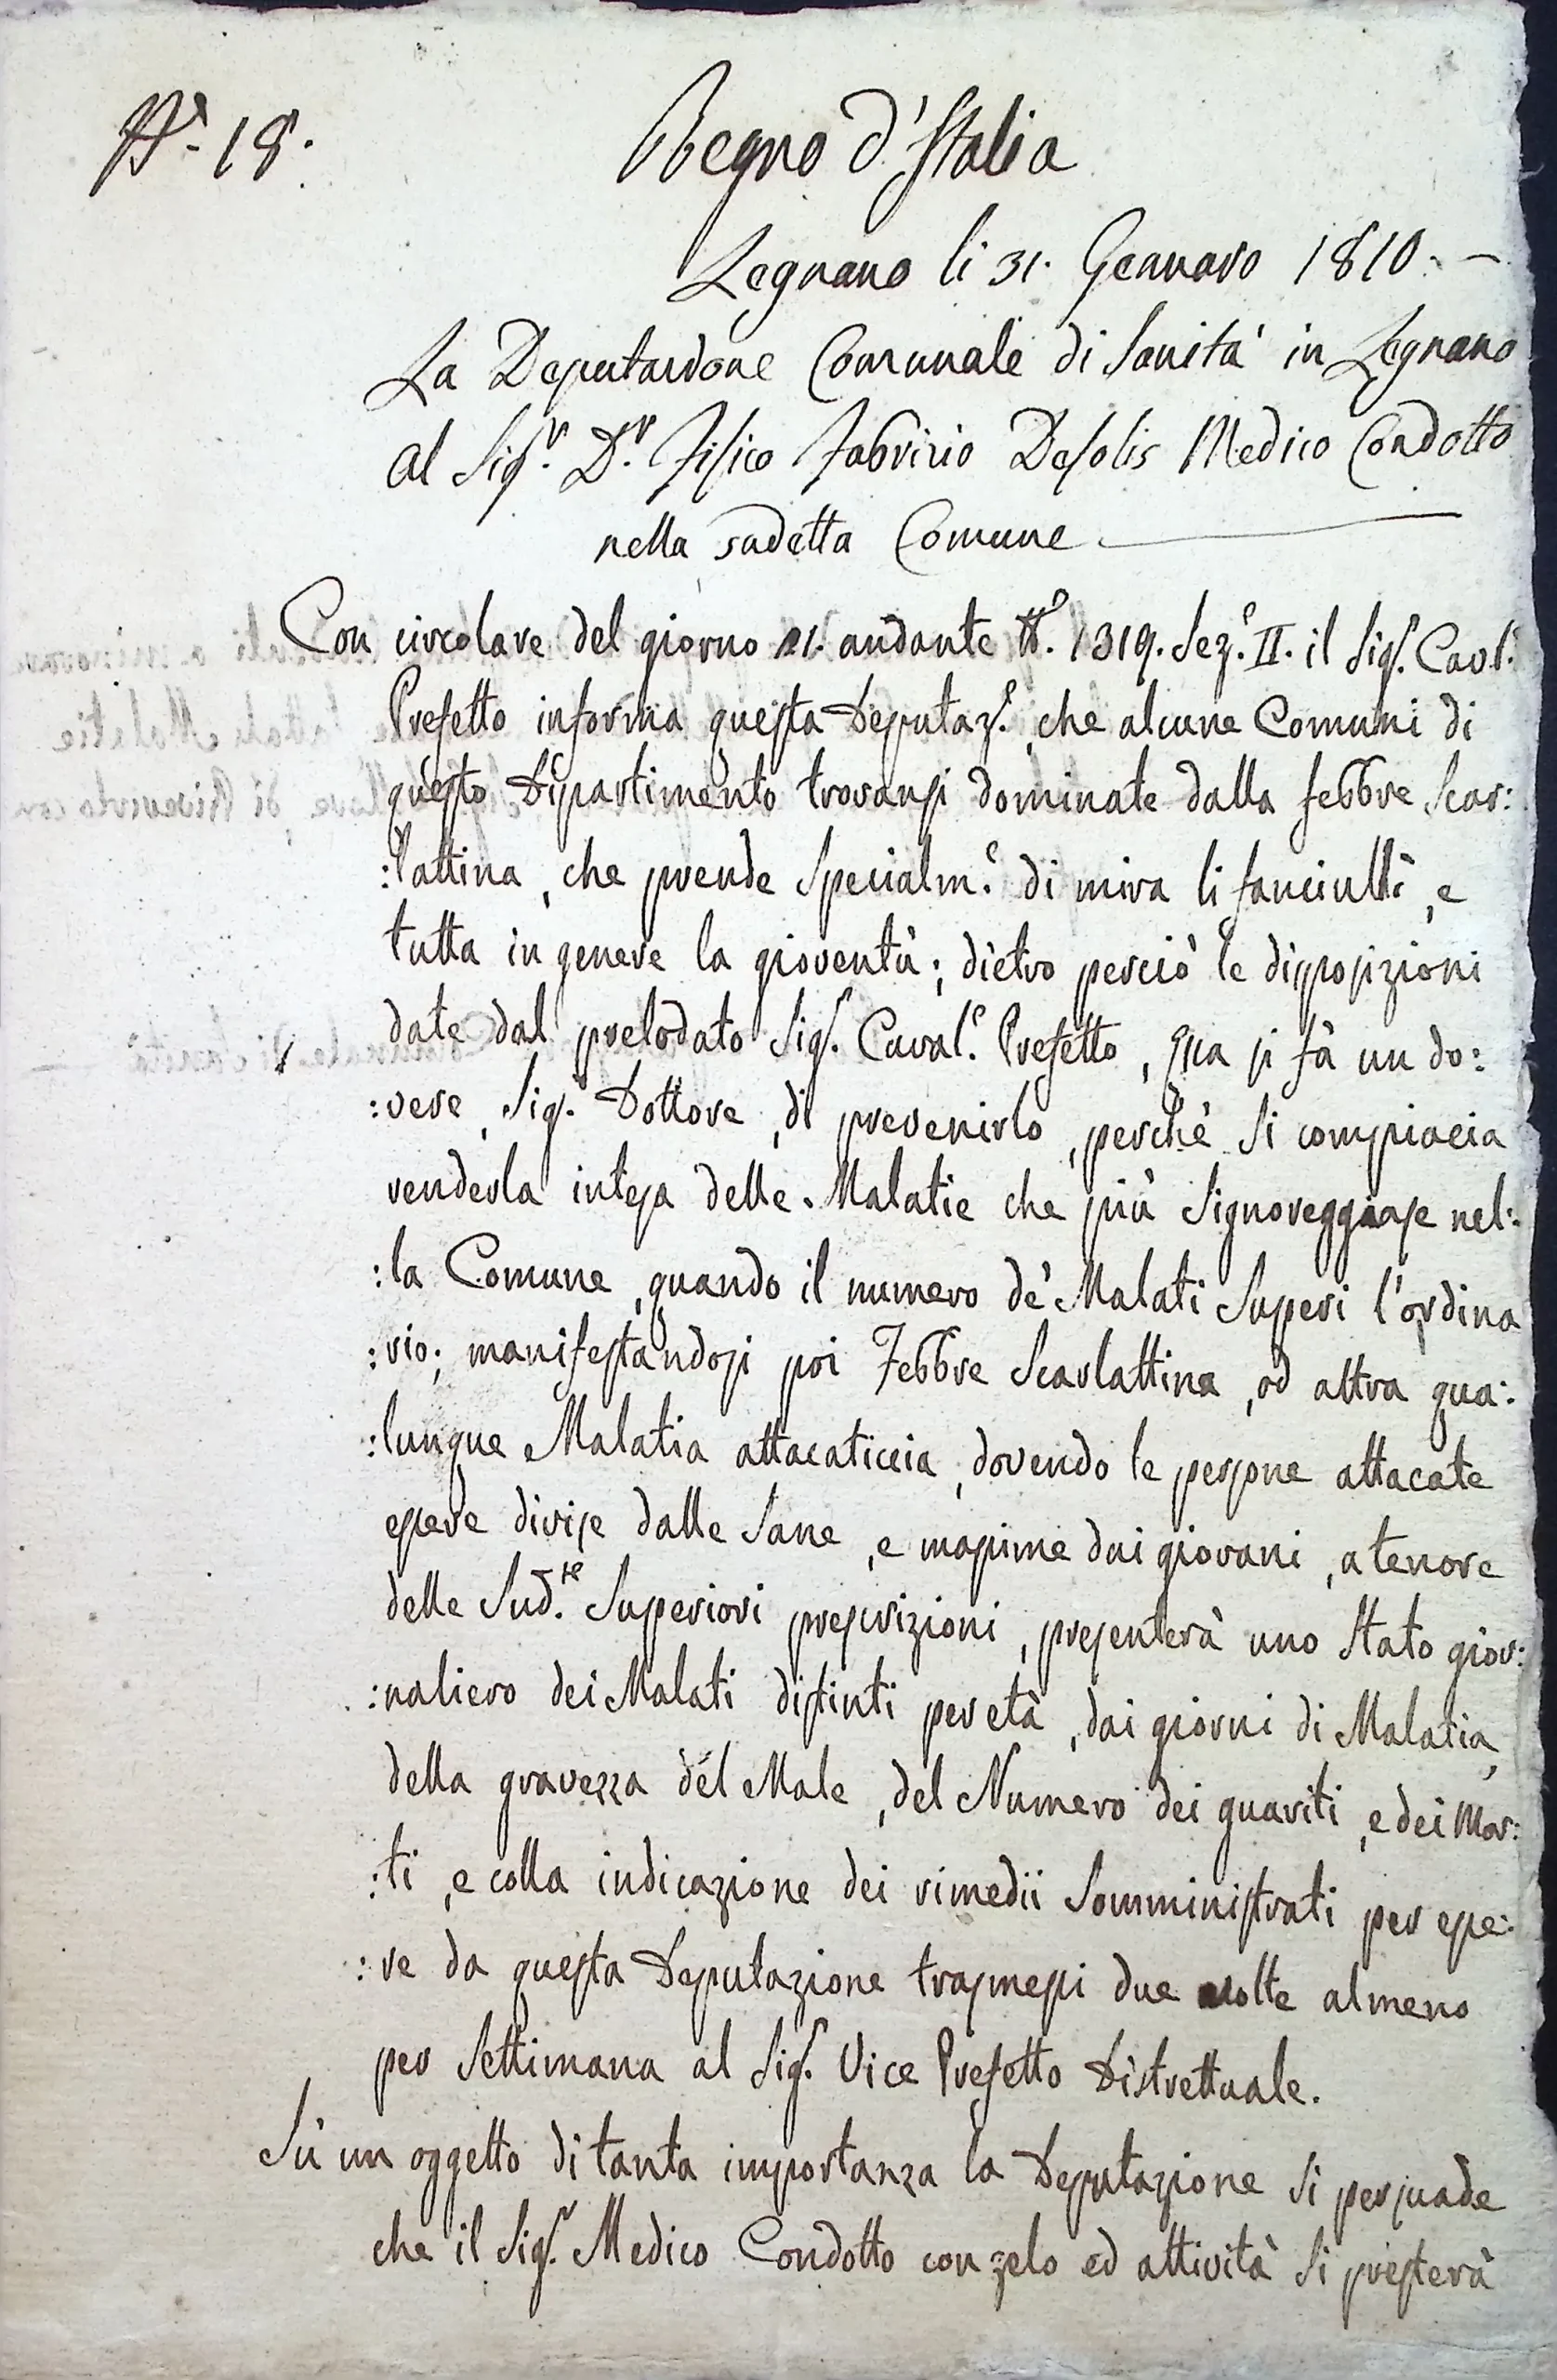 N.° 18.
Regno d'Italia
Legnano li 31. Gennaro 1810. -
La Deputazione Comunale di Sanità in Legnano
Al Sig.r D.r Fisico Fabrizio Desolis Medico Condotto
nella sudetta Comune
Con circolare del giorno 21. andante N.° 1319. Sez.e II. il Sig.r Cav.r
Prefetto informa questa Deputaz.e, che alcune Comuni di
questo Dipartimento trovansi dominate dalla febbre Scar:
:lattina, che prende Specialm.e di mira li fanciulli, e
tutta in genere la gioventù; dietro perciò le disposizioni
date dal prelodato Sig.r Caval.e Prefetto, Essa si fà un do:
:vere, Sig.r Dottore, di prevenirlo, perchè Si compiacia
renderla intesa delle Malatie che più Signoreggiase nel:
:la Comune, quando il numero de' Malati Superi l'ordina
:rio; manifestandosi poi Febbre Scarlattina, od altra qua:
:lunque Malatia attacaticcia, dovendo le persone attacate
essere divise dalle Sane, e massime dai giovani, a tenore
delle Sud.te Superiori prescrizioni, presenterà uno Stato gior:
:naliero dei Malati distinti per età, dai giorni di Malatia,
della gravezza del Male, del Numero dei guariti, e dei Mor:
:ti, e colla indicazione dei rimedii Somministrati per esse:
:re da questa Deputazione trasmessi due volte almeno
per Settimana al Sig.r Vice Prefetto Distrettuale.
Sù un oggetto di tanta importanza la Deputazione Si persuade
che il Sig.r Medico Condotto con zelo ed attività Si presterà